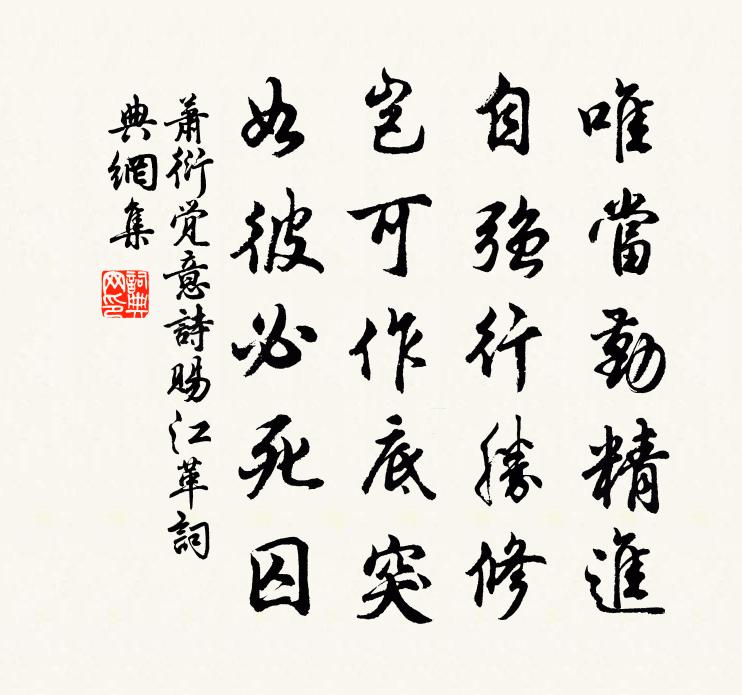 唯當勤精進
自強行勝修
豈可作底突
如彼必死囚
蕭衍覺意詩賜江革詞
典網集
詞典网印